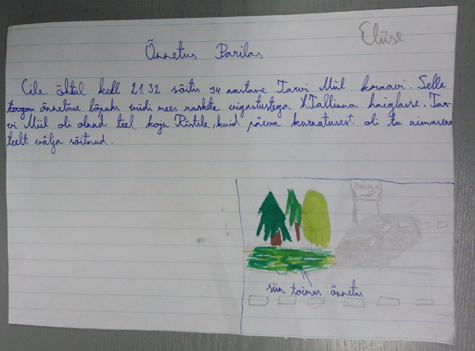 Eliise
Õnnetus Parilas
Eile õhtul kell 21.32 sõitis 34 aastane Tarvi Mül kraavi. Selle
õnnetuse lõpuks viidi mees raskete vigastustega Tallinna haiglasse. Tar-
vi Mül oli olnud teel koju Ristile, kuid päeva kurnatusest oli ta
teelt välja sõitnud.
PARILA
siin toimus õnnetus